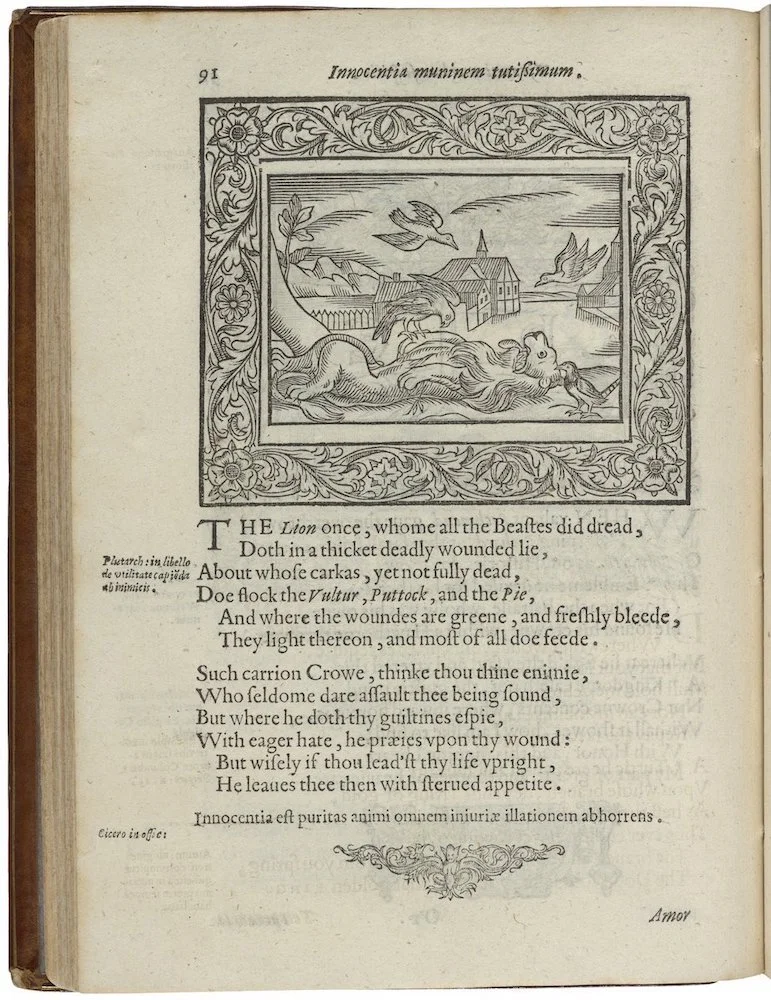 91 Innocentia muninem tutiſsimum.
THE Lion once, whome all the Beaſtes did dread,
Doth in a thicket deadly wounded lie,
About whoſe carkas, yet not fully dead,
Doe flock the Vultur, Puttock, and the Pie,
And where the woundes are greene, and freſhly bleede,
They light thereon, and moſt of all doe feede.
Plutarch: in libello
de vtilitate capiẽda
ab inimicis.
Such carrion Crowe, thinke thou thine enimie,
Who ſeldome dare aſſault thee being ſound,
But where he doth thy guiltines eſpie,
With eager hate, he præies vpon thy wound:
But wiſely if thou lead'ſt thy life vpright,
He leaues thee then with ſterued appetite.
Innocentia eſt puritas animi omnem iniuriæ illationem abhorrens.
Cicero in offic:
Amor